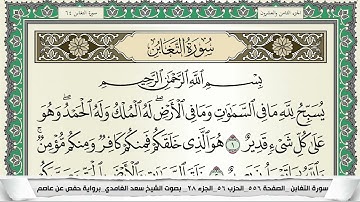 الجزء الثامن والعشرون
سورة التغابن ٦٤
سُورَةُ التَّغَابُنِ
بِسْمِ اللَّهِ الرَّحْمَٰنِ الرَّحِيمِ
يُسَبِّحُ لِلَّهِ مَا فِي السَّمَٰوَٰتِ وَمَا فِي الْأَرْضِ لَهُ الْمُلْكُ وَلَهُ الْحَمْدُ وَهُوَ
عَلَىٰ كُلِّ شَيْءٍ قَدِيرٌ ١ هُوَ الَّذِي خَلَقَكُمْ فَمِنكُمْ كَافِرٌ وَمِنكُم مُّؤْمِنٌ
سورة التغابن _ الصفحة ٥٥٦_ الحزب ٥٦_ الجزء ٢٨_ بصوت الشيخ سعد الغامدي برواية حفص عن عاصم